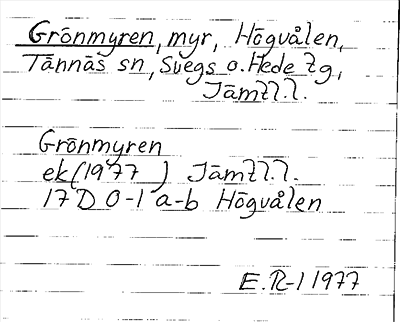 Grönmyren, myr, Högvålen,
Tännäs sn, Svegs o. Hede tg,
Jämtl.l.
Grönmyren
ek (1977 ) Jämtl.l.
17D 0-1 a-b Högvålen
E.R-l 1977